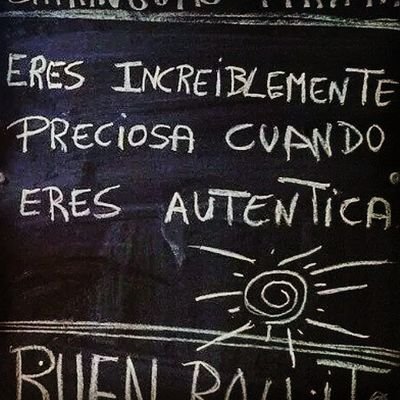 ERES INCREIBLEMENTE
PRECIOSA CUANDO
ERES AUTENTICA
BUEN